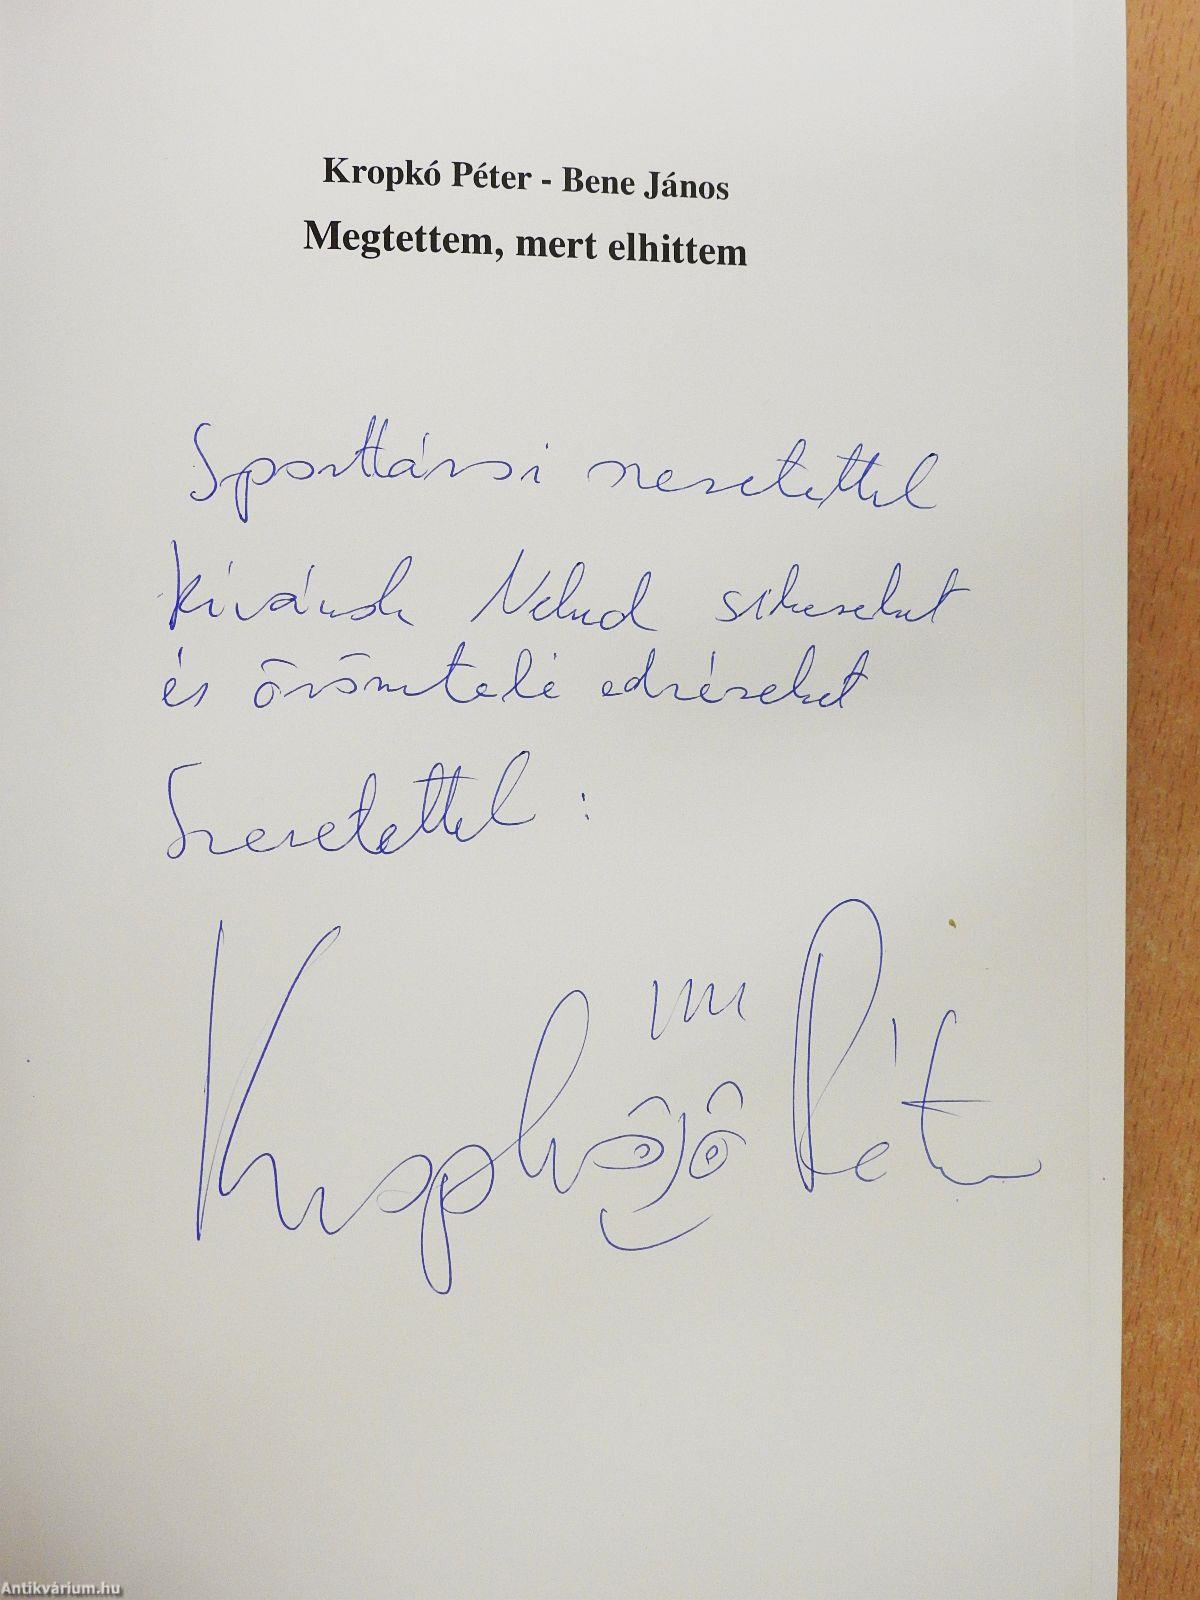 Kropkó Péter - Bene János
Megtettem, mert elhittem
Sporttársi szeretettel
kívánok Neked sikereket
és örömteli edzéseket
Szeretettel :
Kropkó Péter
Antikvárium.hu